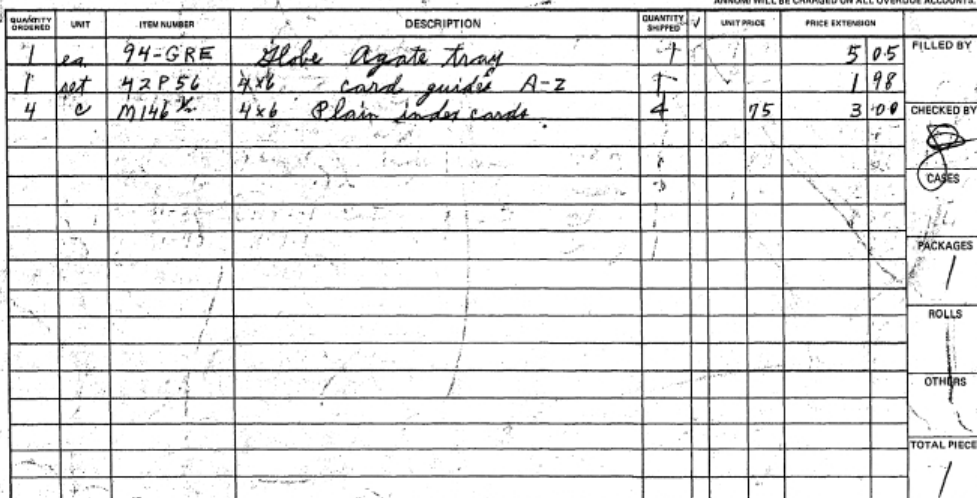 ANNUM) WILL BE CHARGED ON ALL OVERDUE ACCOUNTS.
QUANTITY ORDERED UNIT ITEM NUMBER DESCRIPTION QUANTITY SHIPPED √ UNIT PRICE PRICE EXTENSION
FILLED BY
1 ea 94-GRE Globe Agate tray 1 5 05
1 set 42P56 4x6 card guides A-Z 1 1 98
4 C M146½ 4x6 Plain index cards. 4 75 3 00
CHECKED BY
CASES
PACKAGES
1
ROLLS
OTHERS
TOTAL PIECE
1